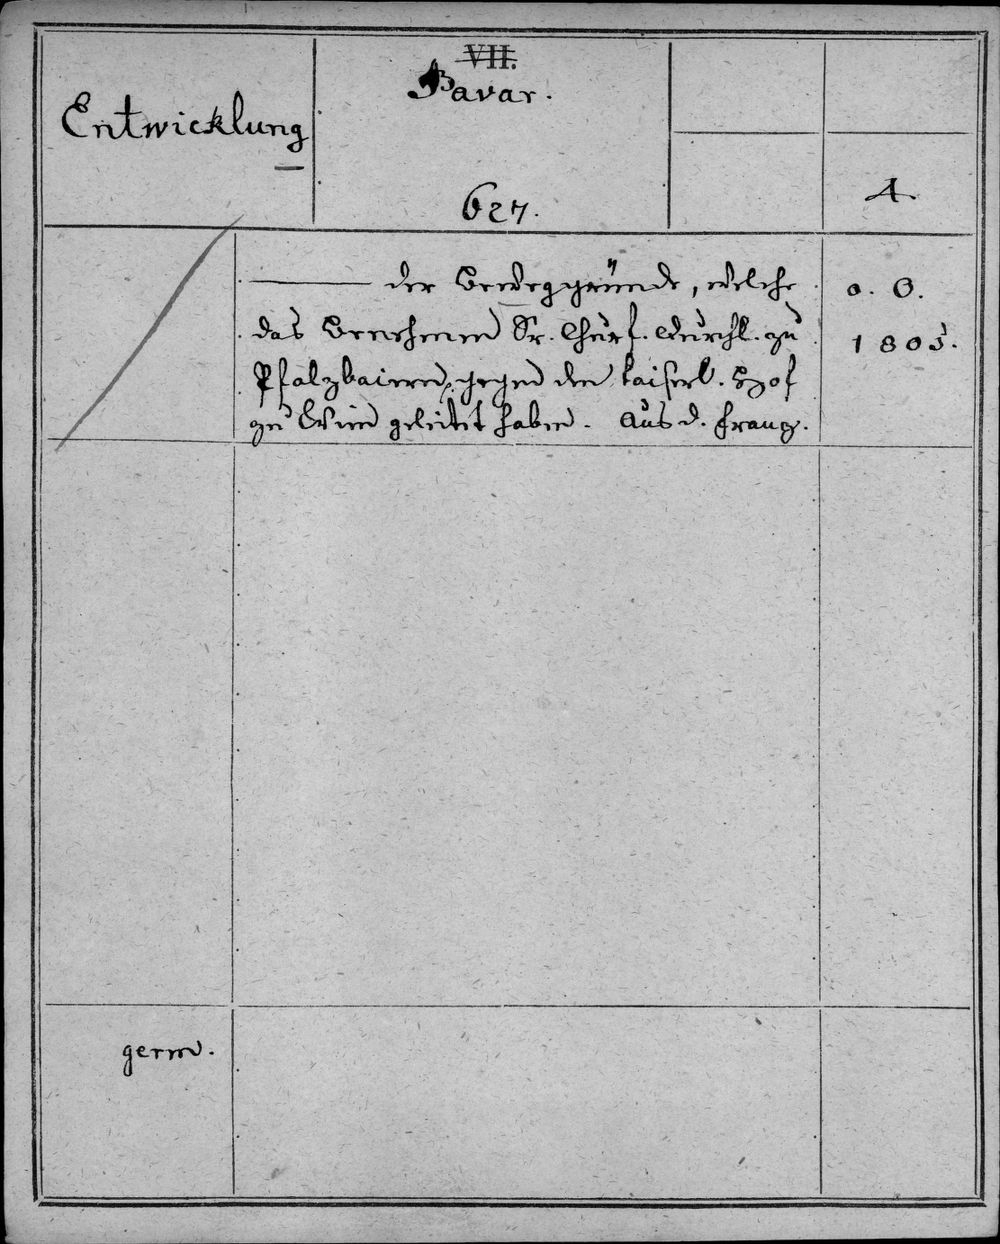 VII.
Bavar.
Entwicklung
627.
A
——— der Beweggründe, welche
das Benehmen Sr. Churf. Durchl. zu
Pfalzbaiern, gegen den kaiserl. Hof
zu Wien geleitet haben. Aus d. Franz.
o. O.
1805.
germ.